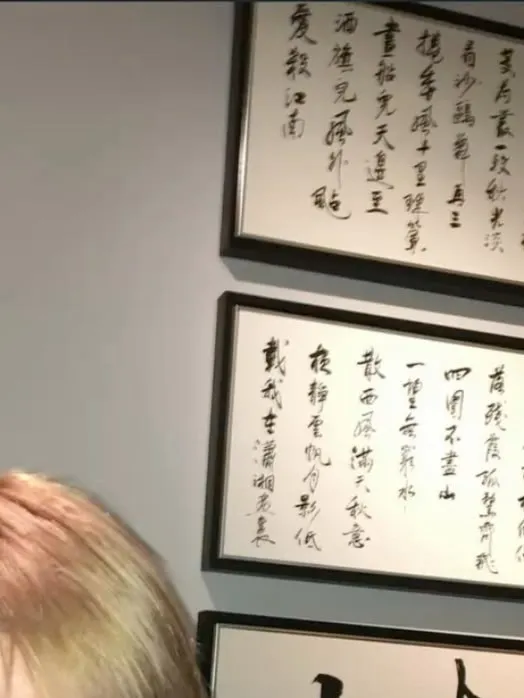 芰荷叢一段秋光淡
看沙鷗舞再三
捲香風十里珠簾
畫船兒天邊至
酒旗兒風外颭
愛殺江南
落殘霞孤鶩齊飛
四圍不盡山
一望無窮水
散西風滿天秋意
夜靜雲帆月影低
載我在瀟湘畫裏